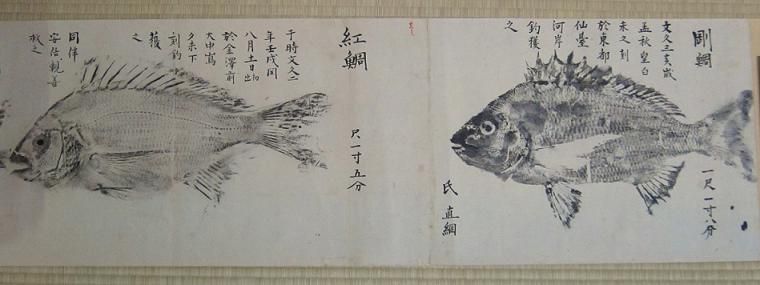 剛鯛
文久三亥歳
孟秋望白
未之刻
於東都
仙臺
河岸
釣獲
之
一尺一寸八分
氏直網
紅鯛
于時文久二
年壬戌閏
八月
於金澤前
大中
夕未下
刻釣
獲
之
尺一寸五分
同伴
之